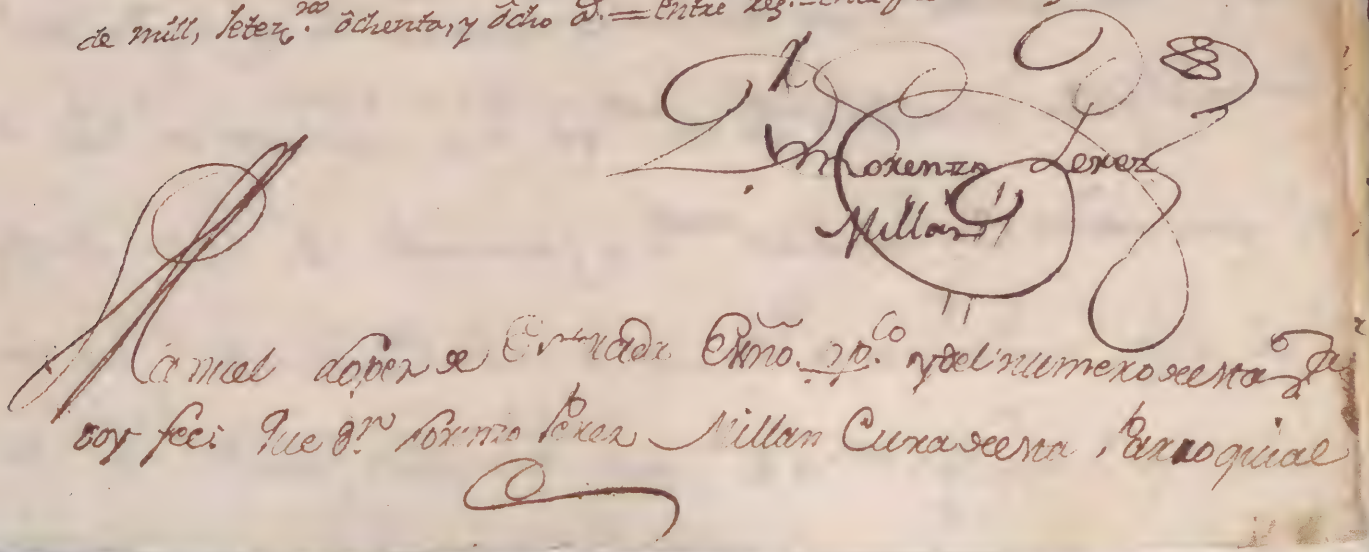 de mill, setez.ros ôchenta, y ôcho a.s = Entre reg.
Dr Lorenzo Perez
Millan
Manuel Lopez de Estrada Esño. pp.co y del numero de esta
doy fee: Que Dn. Lorenzo Perez Millan Cura de esta Parroquial